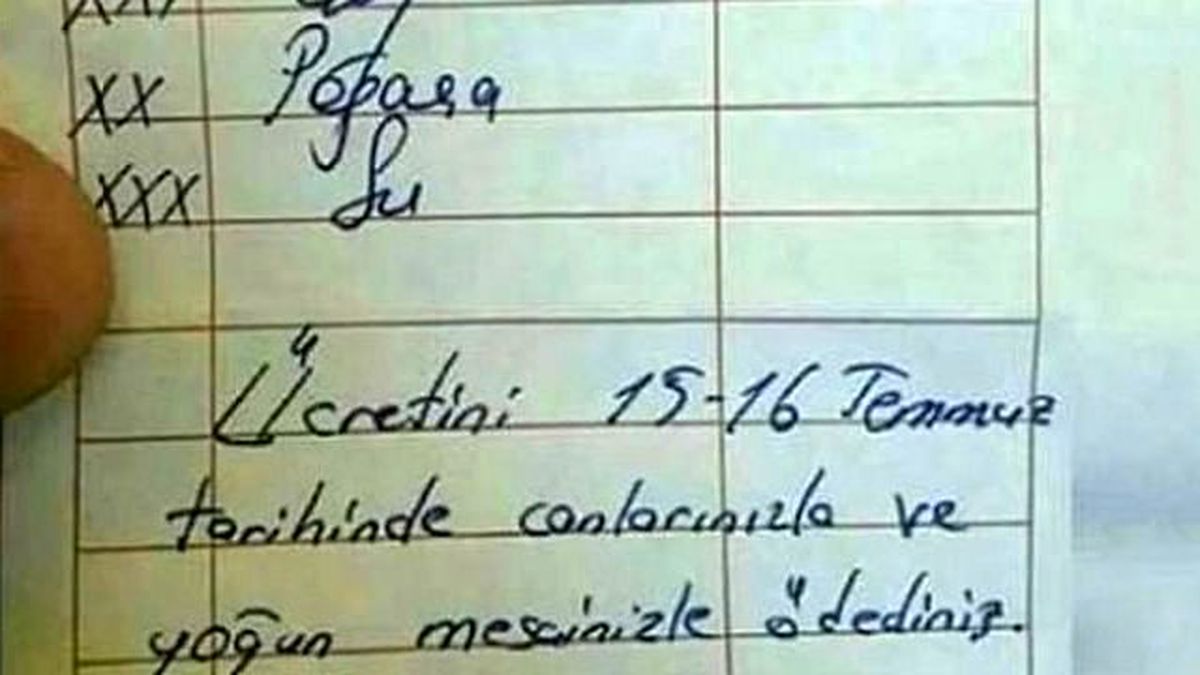 XX Poğaça
XXX Su
Ücretini 15-16 Temmuz
tarihinde canlarınızla ve
yoğun mesainizle ödediniz.